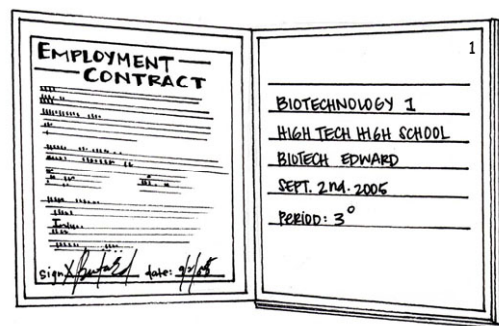 EMPLOYMENT
CONTRACT
sign X date: 9/2/05
1
BIOTECHNOLOGY 1
HIGH TECH HIGH SCHOOL
BIOTECH EDWARD
SEPT. 2nd. 2005
PERIOD: 3°